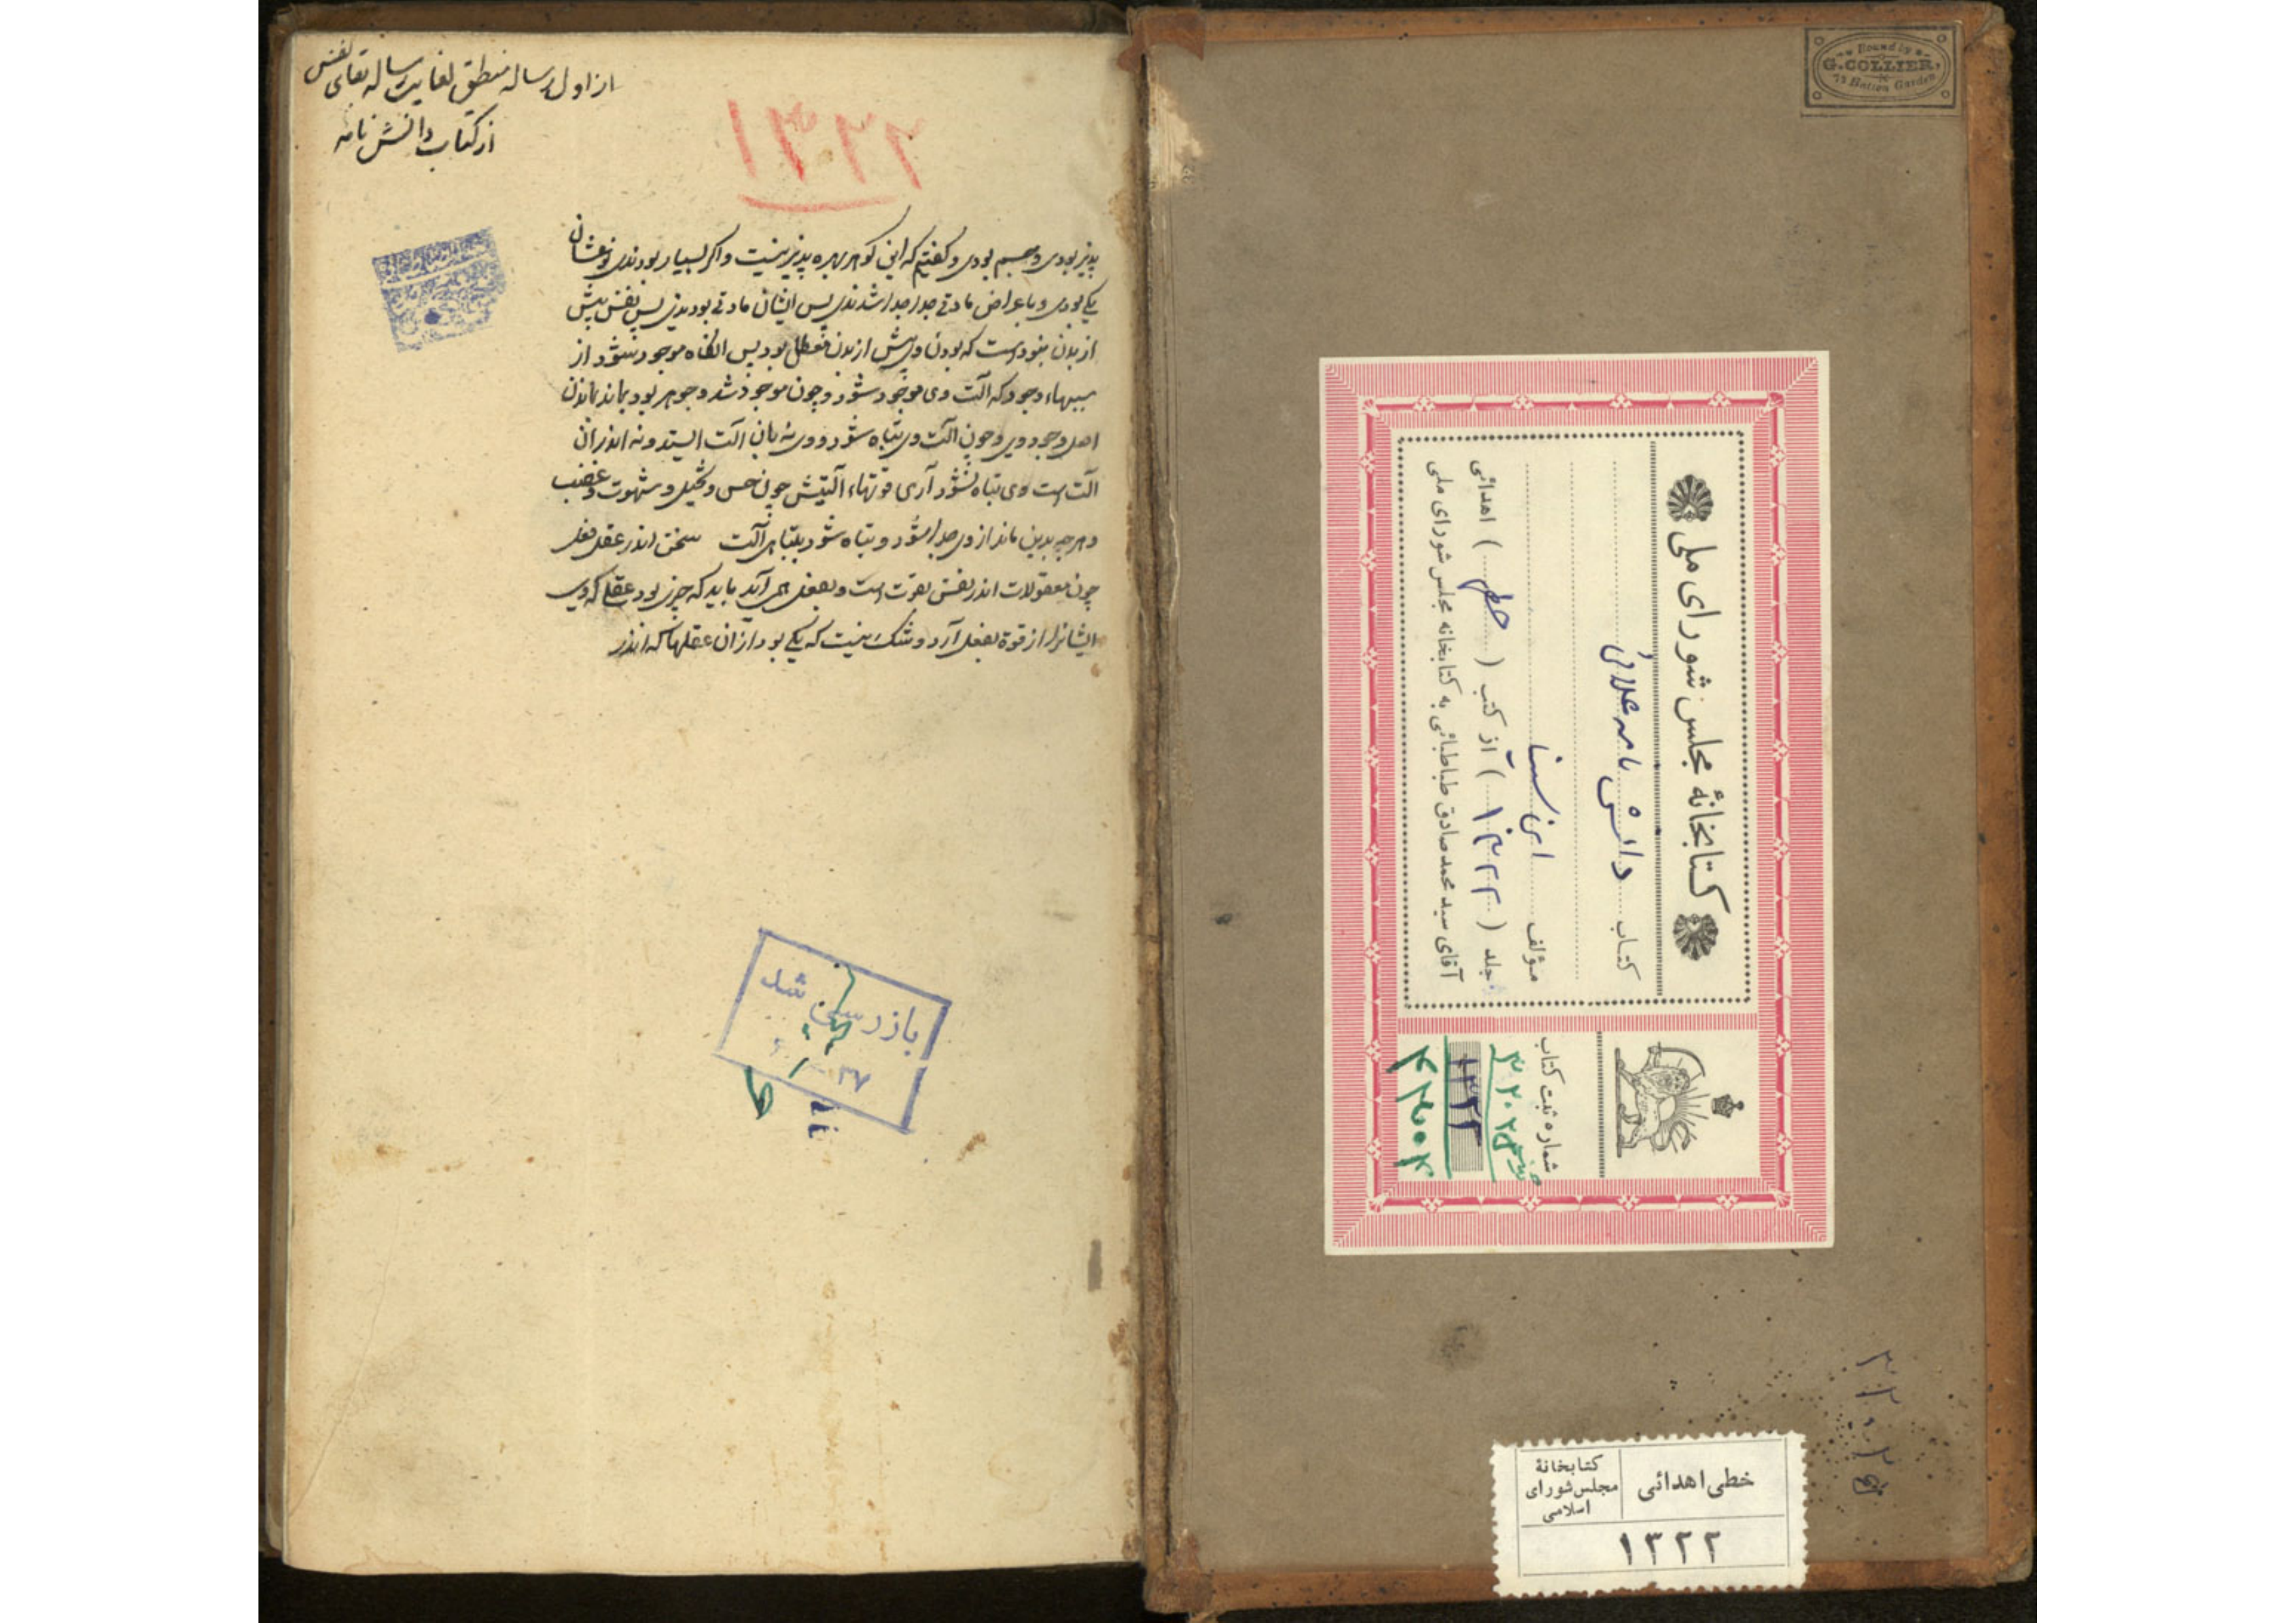 از اول رساله منطق لغایت رساله بقای نفس
از کتاب دانش نامه
۱۳۲۲
پذیر بودی و جسم بودی و گفتیم که این گوهر بهره پذیر نیست و اگر بسیار بودندی نوعشان
یکی بودی و باعراض مادتی جدا جدا شدندی پس ایشان مادتی بودندی پس نفس پیش
از بدن نبودست که بودن وی پیش از بدن معطل بود پس انگاه موجود شود از
سببهاء وجود که آلت وی موجود شود و چون موجود شد و جوهر بود بماند بماندن
اصل وجود وی و چون آلت وی تباه شود و وی نه بان آلت ایستد و نه اندران
آلت است وی تباه نشود آری قوتهاء آلتیش چون حس و تخیل و شهوت و غضب
و هر چه بدین ماند از وی جدا شود و تباه شود بتباهی آلت سخن اندر عقل فعل
چون معقولات اندر نفس بقوت است و بفعل همی آید باید که چیزی بود عقلی که وی
ایشانرا از قوة بفعل آرد و شک نیست که یکی بود از ان عقلها که اندر
بازرسی شد
۳۷
Bound by
G. COLLIER,
Hatton Garden
کتابخانهٔ مجلس شورای ملی
کتاب دانش نامه علائی
مؤلف ابن سینا
جلد (۱۳۲۲) از کتب (خطی) اهدائی
آقای سید محمد صادق طباطبائی به کتابخانه مجلس شورای ملی
شماره ثبت کتاب
۱۳۲۲
خطی اهدائی
کتابخانهٔ
مجلس شورای
اسلامی
۱۳۲۲